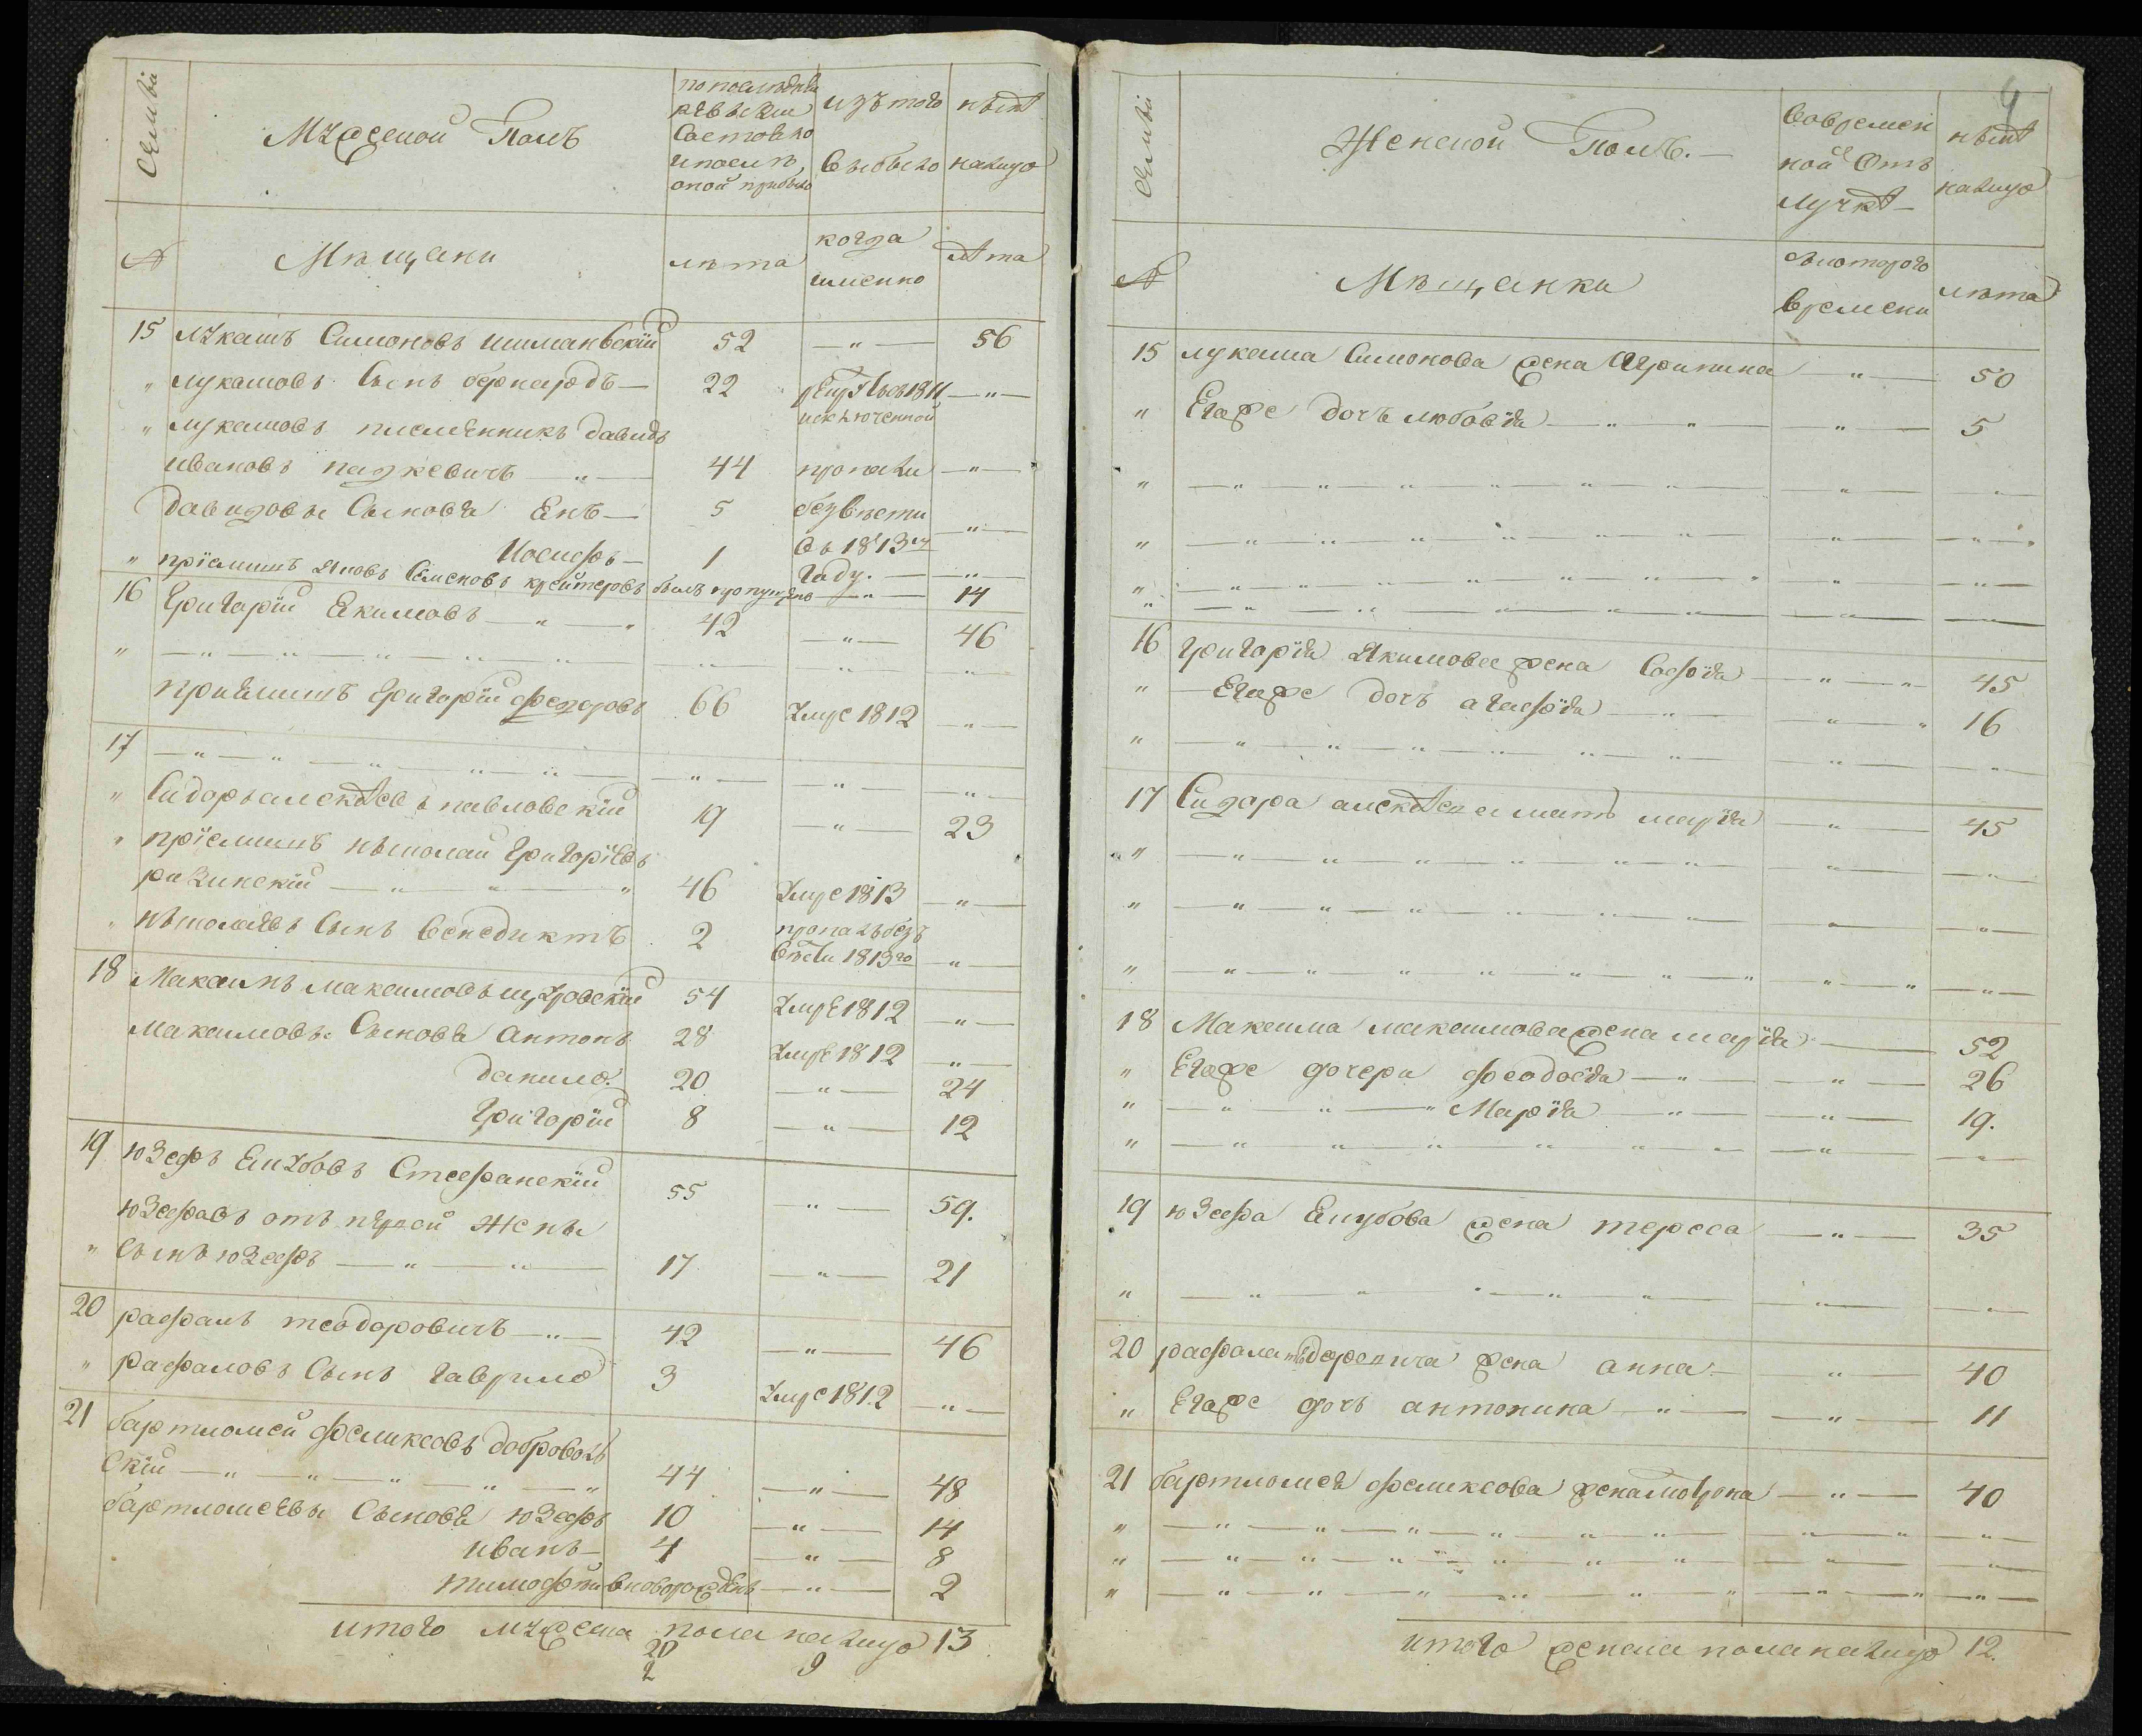 Семьи
Мужеской Полъ
по последней
ревизии
Состояло
и после
оной прибыло
изъ того
Выбыло
ныне
налицо
№
Мещани
лета
когда
именно
лета
15 лукашъ Симоновъ шиманьскій 52 — " — 56
" лукашовъ Сынъ бернардъ — 22 1811 — " —
исключенной
" лукашовъ племенникъ давидъ
ивановъ пацкевичъ — " — 44 пропали — " —
давидовы Сыновя Янъ — 5 безвести — " —
Иосифъ — 1 Съ 1813го
году. — — " —
" пріемышъ Яковъ Семеновъ крейтеровъ былъ пропущенъ — " — 14
16 григорій Екимовъ — " — " 42 — " — 46
" — " — " — " — " — " " " "
приемышъ григорій федоровъ 66 умре 1812 — " —
17 — " — " — " — " — " — — " — " — " —
" Сидоръ алексеевъ павловскій 19 — " — 23
" пріемышъ николай григоріевъ
ражинскій — " — " — " 46 умре 1813 — " —
" николаевъ Сынъ венедиктъ 2 пропалъ безъ
вести 1813го — " —
18 Максимъ максимовъ 54 умре 1812 — " —
максимовы Сыновя антонъ 28 умре 1812 — " —
данило. 20 — " — 24
григорій 8 — " — 12
19 юзефъ Якубовъ Стефанскій 55 — " — 59.
юзефовъ отъ первой жены
" сынъ юзефъ — " — " — 17 — " — 21
20 рафалъ теодоровичъ — " — 42 — " — 46
" рафаловъ Сынъ гаврило 3 умре 1812 — " —
21 бартломей феликсовъ доброволь
скій — " — " — " — " — " 44 — " — 48
бартломеевы Сыновя юзефъ 10 — " — 14
иванъ — 4 — " — 8
тимофей вноворожденъ — " — 2
итого мужеска пола налицо 13
20
2 9
9
Семьи
Женской Полъ. —
Вовремен
ной Отъ
лучке —
ныне
налицо
№
Мещанки
Скотораго
времени
лета
15 лукаша Симонова жена Агрипина — " — 50
" Егоже дочь любовія — " — " — — " — 5
" — " — " — " — " — " — " — " "
" — " — " — " — " — " — " — " — " —
" — " — " — " — " — " — " — " — " —
" — " — " — " — " — " — " — " — " —
16 григорія Якимова жена Софія — " — " 45
" — Егоже дочь агафія — " — " — " 16
" — " — " — " — " — " — " — " — " —
17 Сидора алексеева мать марія — " — 45
" — " — " — " — " — " — " — " — " —
" — " — " — " — " — " — " — " — " —
" — " — " — " — " — " — " — " — " —
18 Максима максимова жена марія — 52
" Егоже дочери феодосія — " — — " — 26
" — " " — " Марія — " — — " — 19.
" — " — " — " — " — " — " — " — " —
19 юзефа Якубова жена тереса — " — 35
" — " — " — " — " — " — " — " —
20 рафала теодоровича жена анна — — " — 40
" Егоже дочь антонина — " — — " — 11
21 бартломея феликсова жена — " — 40
" — " — " — " — " — " — " — " — " —
" — " — " — " — " — " — " — " — "
" — " — " — " — " — " — " — " — " —
итого женска пола налицо 12.